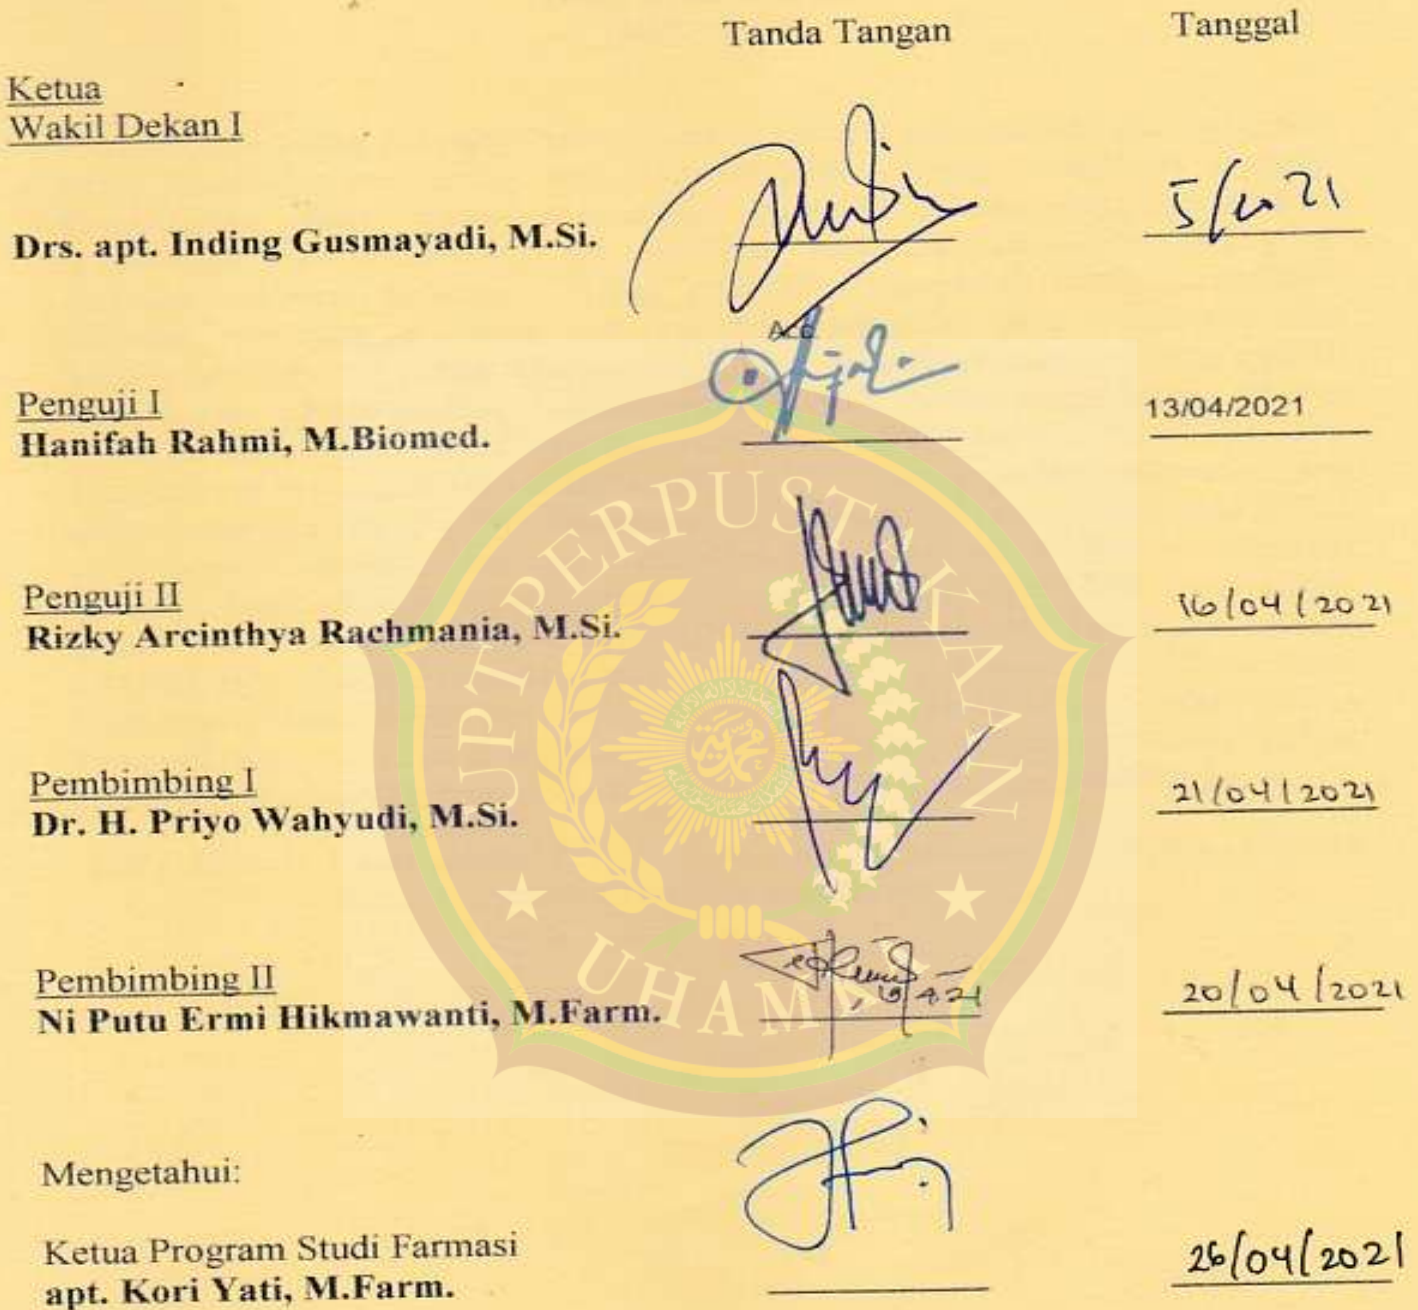 Tanda Tangan Tanggal
Ketua
Wakil Dekan I
Drs. apt. Inding Gusmayadi, M.Si.
Acc
Penguji I
Hanifah Rahmi, M.Biomed. 13/04/2021
Penguji II
Rizky Arcinthya Rachmania, M.Si. 16/04/2021
Pembimbing I
Dr. H. Priyo Wahyudi, M.Si. 21/04/2021
Pembimbing II
Ni Putu Ermi Hikmawanti, M.Farm. 20/04/2021
Mengetahui:
Ketua Program Studi Farmasi
apt. Kori Yati, M.Farm. 26/04/2021
UPT PERPUSTAKAAN
UHAMKA